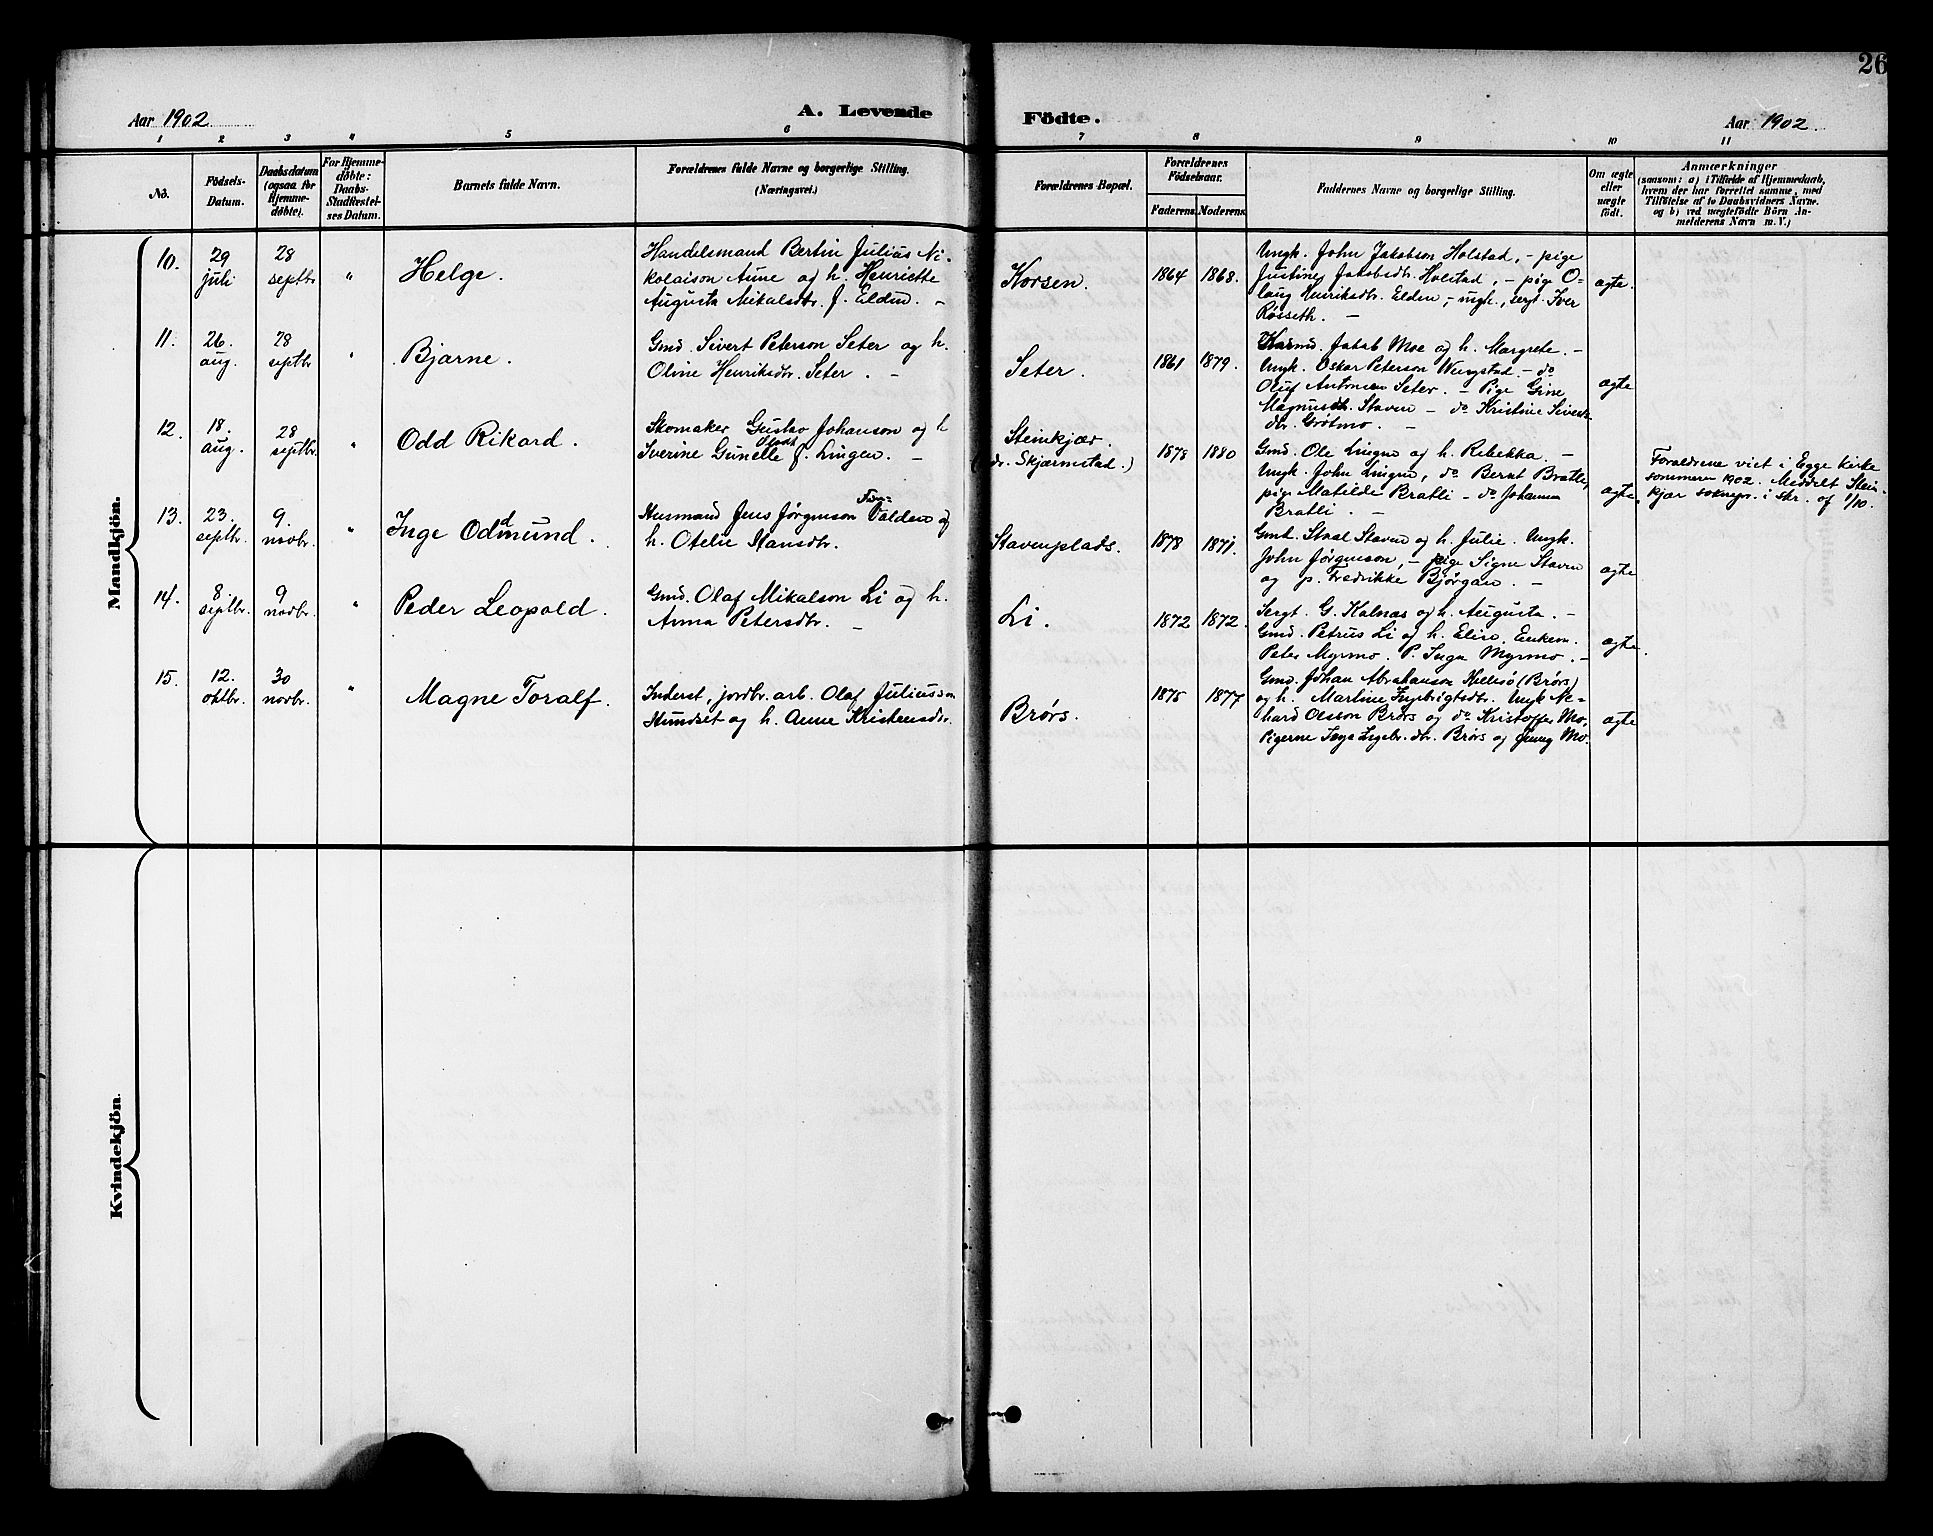 26
Aar 1902
A. Levende
Födte.
Aar 1902.
1 2 3 4 5 6 7 8 9 10 11
No.
Födsels-
Datum.
Daabsdatum
(ogsaa for
Hjemme-
døbte).
For Hjemme-
døbte:
Daabs-
Stadfæstel-
ses Datum.
Barnets fulde Navn.
Forældrenes fulde Navne og borgerlige Stilling.
(Næringsvei.)
Forældrenes Bopæl.
Forældrenes
Födselsaar.
Faderens. Moderens.
Faddernes Navne og borgerlige Stilling.
Om ægte
eller
uægte
födt.
Anmærkninger
(saasom: a) i Tilfælde af Hjemmedaab,
hvem der har forrettet samme, med
Tilføielse af to Daabsvidners Navne.
og b) ved uægtefödte Börn An-
melderens Navn m. V.)
Mandkjön.
10.
29
juli
28
septbr
"
Helge.
Handelsmand Bertin Julius Ni-
kolaison Aune og h. Henriette
Augusta Mikalsdtr. f. Elden. –
Korsen.
1864
1868.
Ungk. John Jakobson Holstad, – pige
Justine Jakobsdtr. Holstad, – pige O-
laug Henriksdtr. Elden, – ungk., sergt. Iver
Røsseth. –
ægte.
11.
26.
aug.
28
septbr
"
Bjarne.
Gmd. Sivert Peterson Seter og h.
Oline Henriksdtr. Seter. –
Seter.
1861
1879.
Jakob Moe og h. Margrete. –
Ungk. Oskar Peterson – do
Oluf Antonsen Seter. – Pige Gine
Magnusdtr. Staven – do Kristine Siverts
dtr. Grøtmo. –
ægte
12.
18.
aug.
28
septbr.
"
Odd Rikard.
Skomaker Gustav Johanson og h
Iverine Gunelle f. Lingen. –
Steinkjær.
Skjærmstad.)
1878
1880
Gmd. Ole Lingen og h. Rebekka –
Ungk. John Lingen, do Bernt Bratli,
pige Matilde Bratli – do Johanna
Bratli. –
ægte
Foraldrene viet i Egge kirke
sommeren 1902. Meddelt Stein-
kjær soknepr. i skr. af 1/10.
13.
23.
septbr.
9.
novbr.
"
Inge Odmund.
Husmand Jens Jørgenson Valden og
h. Otelie Hansdtr.
Stavenplads.
1878
1871.
Gmd. Staal Staven og h. Julie. Ungk.
John Jørgenson, – pige Signe Staven
og p. Fredrikke Bjørgan. –
ægte
14.
8.
septbr.
9
novbr.
"
Peder Leopold.
Gmd. Olaf Mikalson Li og h.
Anna Petersdtr. –
Li.
1872
1872.
Sergt. G. Kalnæs og h. Augusta. –
Gmd. Petrus Li og h. Elise. Enkem.
Peter Myrmo. P. Inga Myrmo. –
ægte.
15.
12.
oktbr.
30
novbr.
"
Magne Toralf.
Inderst, jordbr. arb. Olaf Juliusson
Hundset og h. Anne Kristensdtr.
Brørs.
1875
1877
Gmd. Johan Abrahanson (Brørs)
og h. Martine Ingebrigtsdtr. Ungk
Olsson Brørs og do Kristoffer Mo,
Pigerne Ingebr. dtr. Brørs og Jenny Mo.
ægte
Kvindekjön.